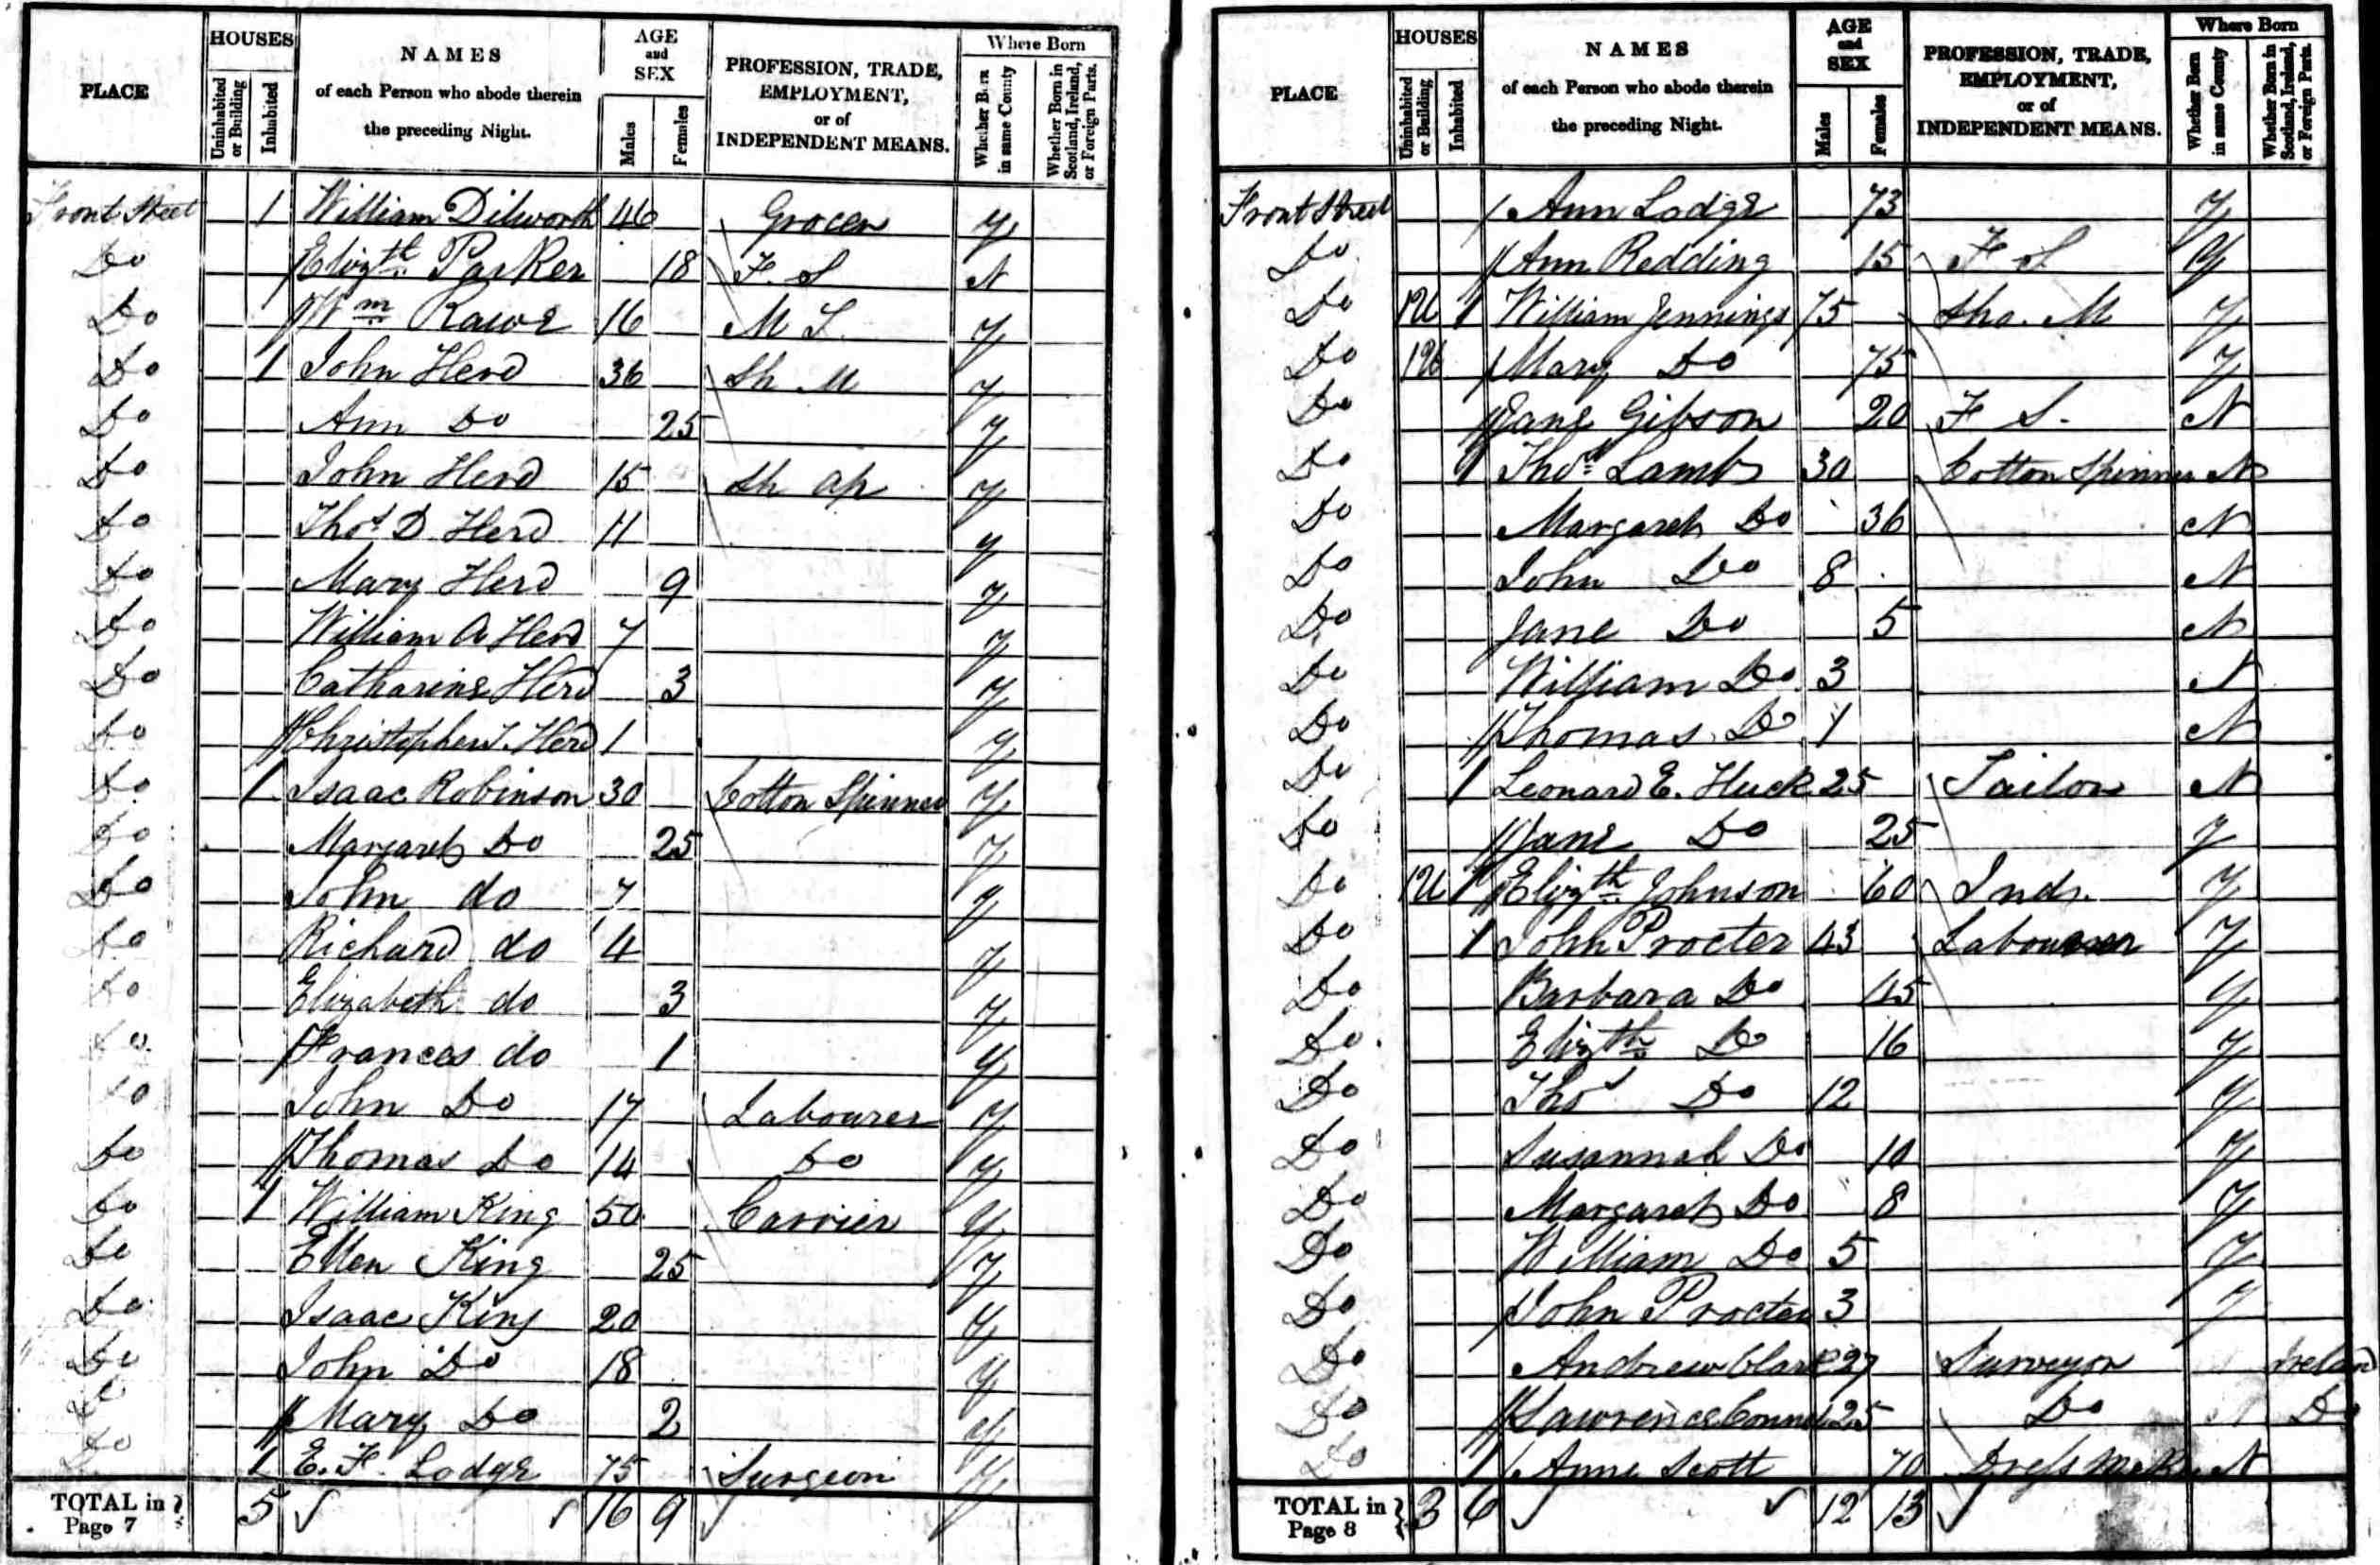 PLACE HOUSES Uninhabited or Building Inhabited NAMES of each Person who abode therein the preceding Night. AGE and SEX Males Females PROFESSION, TRADE, EMPLOYMENT, or of INDEPENDENT MEANS. Where Born Whether Born in same County Whether Born in Scotland, Ireland, or Foreign Parts.
Front Street 1 William Dilworth 46 Grocer Y
Do Elizth Parker 18 F. S N
Do Wm Rawe 16 M S. Y
Do 1 John Herd 36 Sh M Y
Do Ann Do 25 Y
Do John Herd 15 Sh Ap Y
Do Thos D Herd 11 Y
Do Mary Herd 9 Y
Do William A Herd 7 Y
Do Catharine Herd 3 Y
Do Christopher J. Herd 1 Y
Do 1 Isaac Robinson 30 Cotton Spinner Y
Do Margaret Do 25 Y
Do John do 7 Y
Do Richard do 4 Y
Do Elizabeth do 3 Y
Do Frances do 1 Y
Do John Do 17 Labourer Y
Do Thomas Do 14 Do Y
Do 1 William King 50 Carrier Y
Do Ellen King 25 Y
Do Isaac King 20 Y
Do John Do 18 Y
Do Mary Do 2 Y
Do 1 E. F. Lodge 75 Surgeon Y
TOTAL in Page 7 } 5 16 9
PLACE HOUSES Uninhabited or Building Inhabited NAMES of each Person who abode therein the preceding Night. AGE and SEX Males Females PROFESSION, TRADE, EMPLOYMENT, or of INDEPENDENT MEANS. Where Born Whether Born in same County Whether Born in Scotland, Ireland, or Foreign Parts.
Front Street Ann Lodge 73 Y
Do Ann Redding 15 F S Y
Do 1U 1 William Jennings 75 Sho. M Y
Do 1U Mary Do 75 Y
Do Jane Gibson 20 F S. N
Do 1 Thos Lamb 30 Cotton Spinner N
Do Margaret Do 36 N
Do John Do 8 N
Do Jane Do 5 N
Do William Do 3 N
Do Thomas Do 1 N
Do 1 Leonard E. Huck 25 Tailor N
Do Jane Do 25 Y
Do 1U 1 Elizth Johnson 60 Ind. Y
Do 1 John Procter 43 Labourer Y
Do Barbara Do 45 Y
Do Elizth Do 16 Y
Do Thos Do 12 Y
Do Susannah Do 10 Y
Do Margaret Do 8 Y
Do William Do 5 Y
Do John Procter 3 Y
Do Andrew Clark 27 Surveyor Ireland
Do Lawrence 25 Do Do
Do 1 Anne Scott 70 Dress Maker N
TOTAL in Page 8 } 3 6 12 13